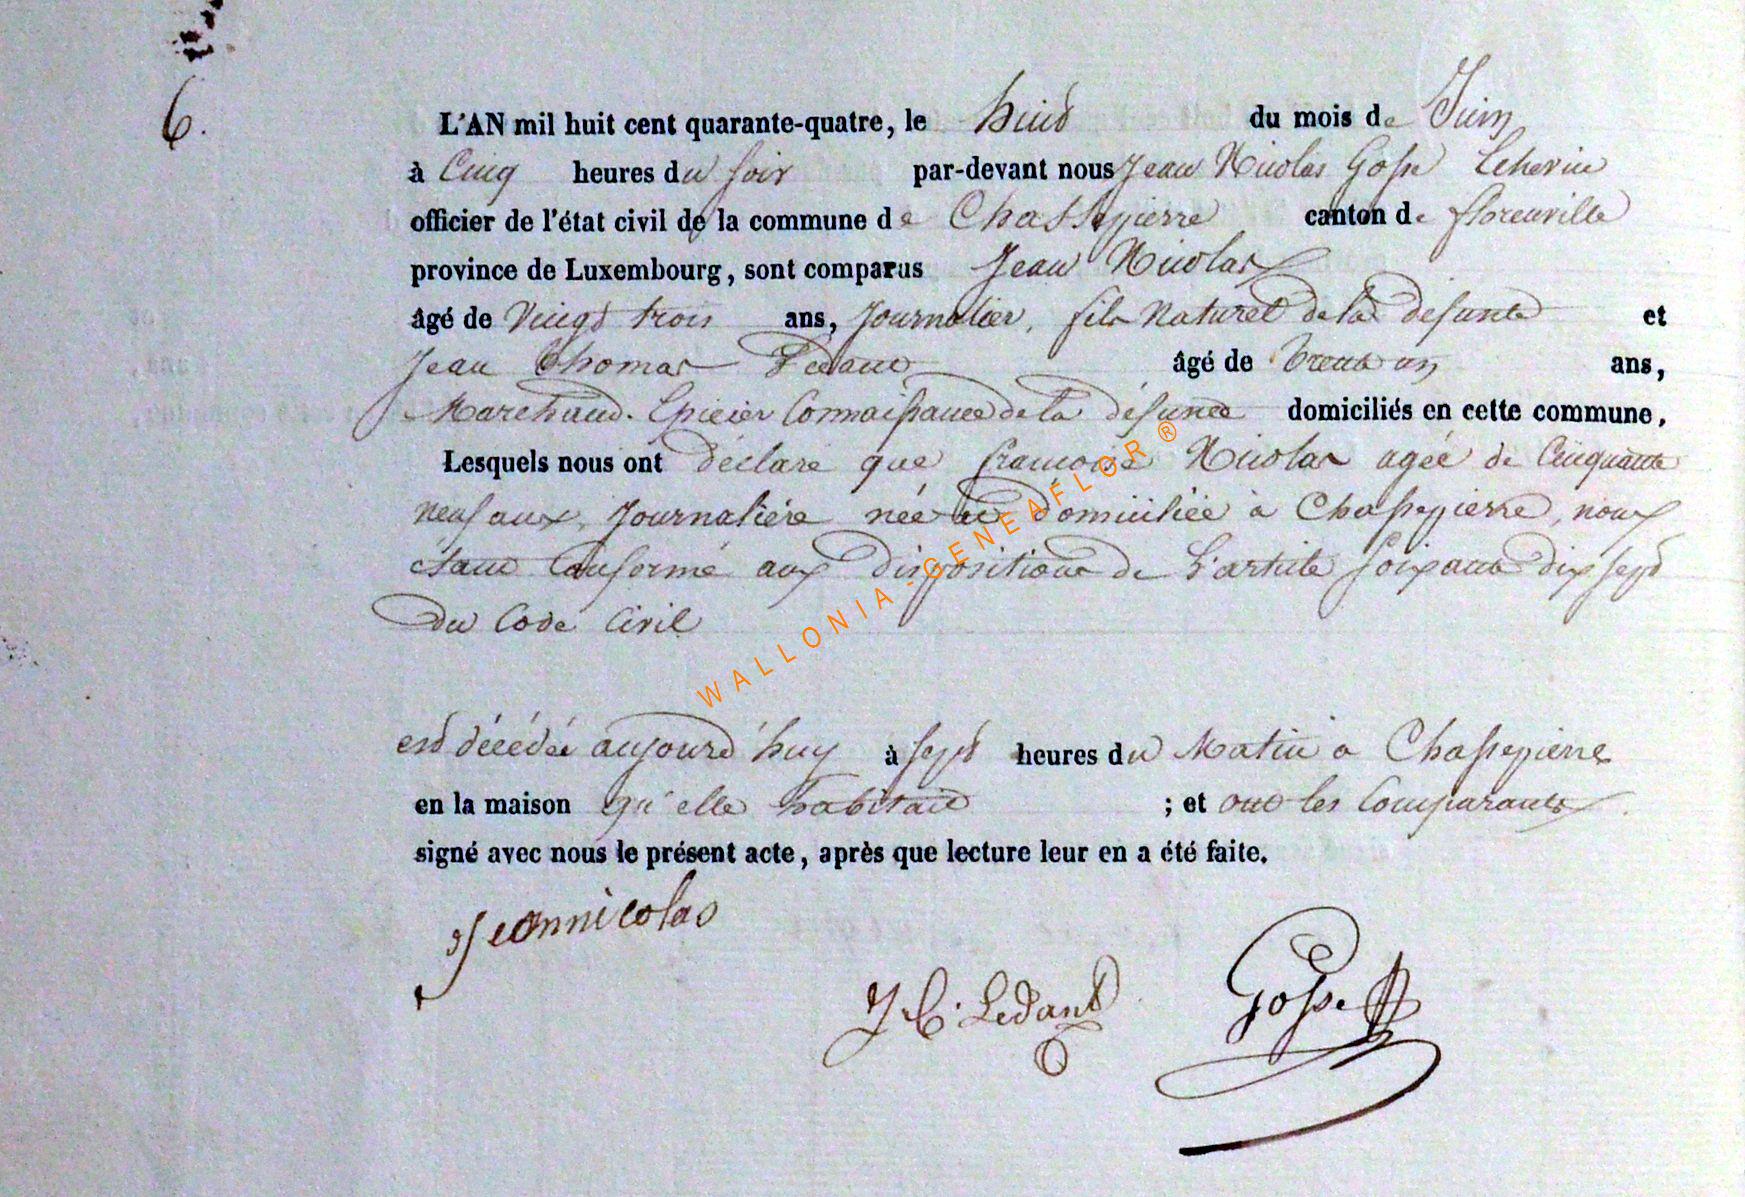 6.
L'AN mil huit cent quarante-quatre, le huit du mois de Juin
à Cinq heures du soir par-devant nous Jean Nicolas Gosse Echevin
officier de l'état civil de la commune de Chassepierre canton de florenville
province de Luxembourg, sont comparus Jean Nicolas
âgé de Vingt trois ans, Journalier, fils Naturel de la défunte et
Jean Thomas Ledant âgé de Trente un ans,
Marchand Epicier Connaissance de la défunte domiciliés en cette commune,
Lesquels nous ont déclaré que francoise Nicolas agée de Cinquante
neuf ans, Journalière née et domiciliée à Chassepierre, nous
étant Conformé aux dispositions de L'article soixante dix sept
du Code Civil
est décédée aujourd'huy à sept heures du Matin a Chassepierre
en la maison qu'elle habitait ; et ont les Comparants
signé avec nous le présent acte, après que lecture leur en a été faite.
Jeannicolas
J. T. Ledant
Gosse
WALLONIA - GENEAFLOR ®